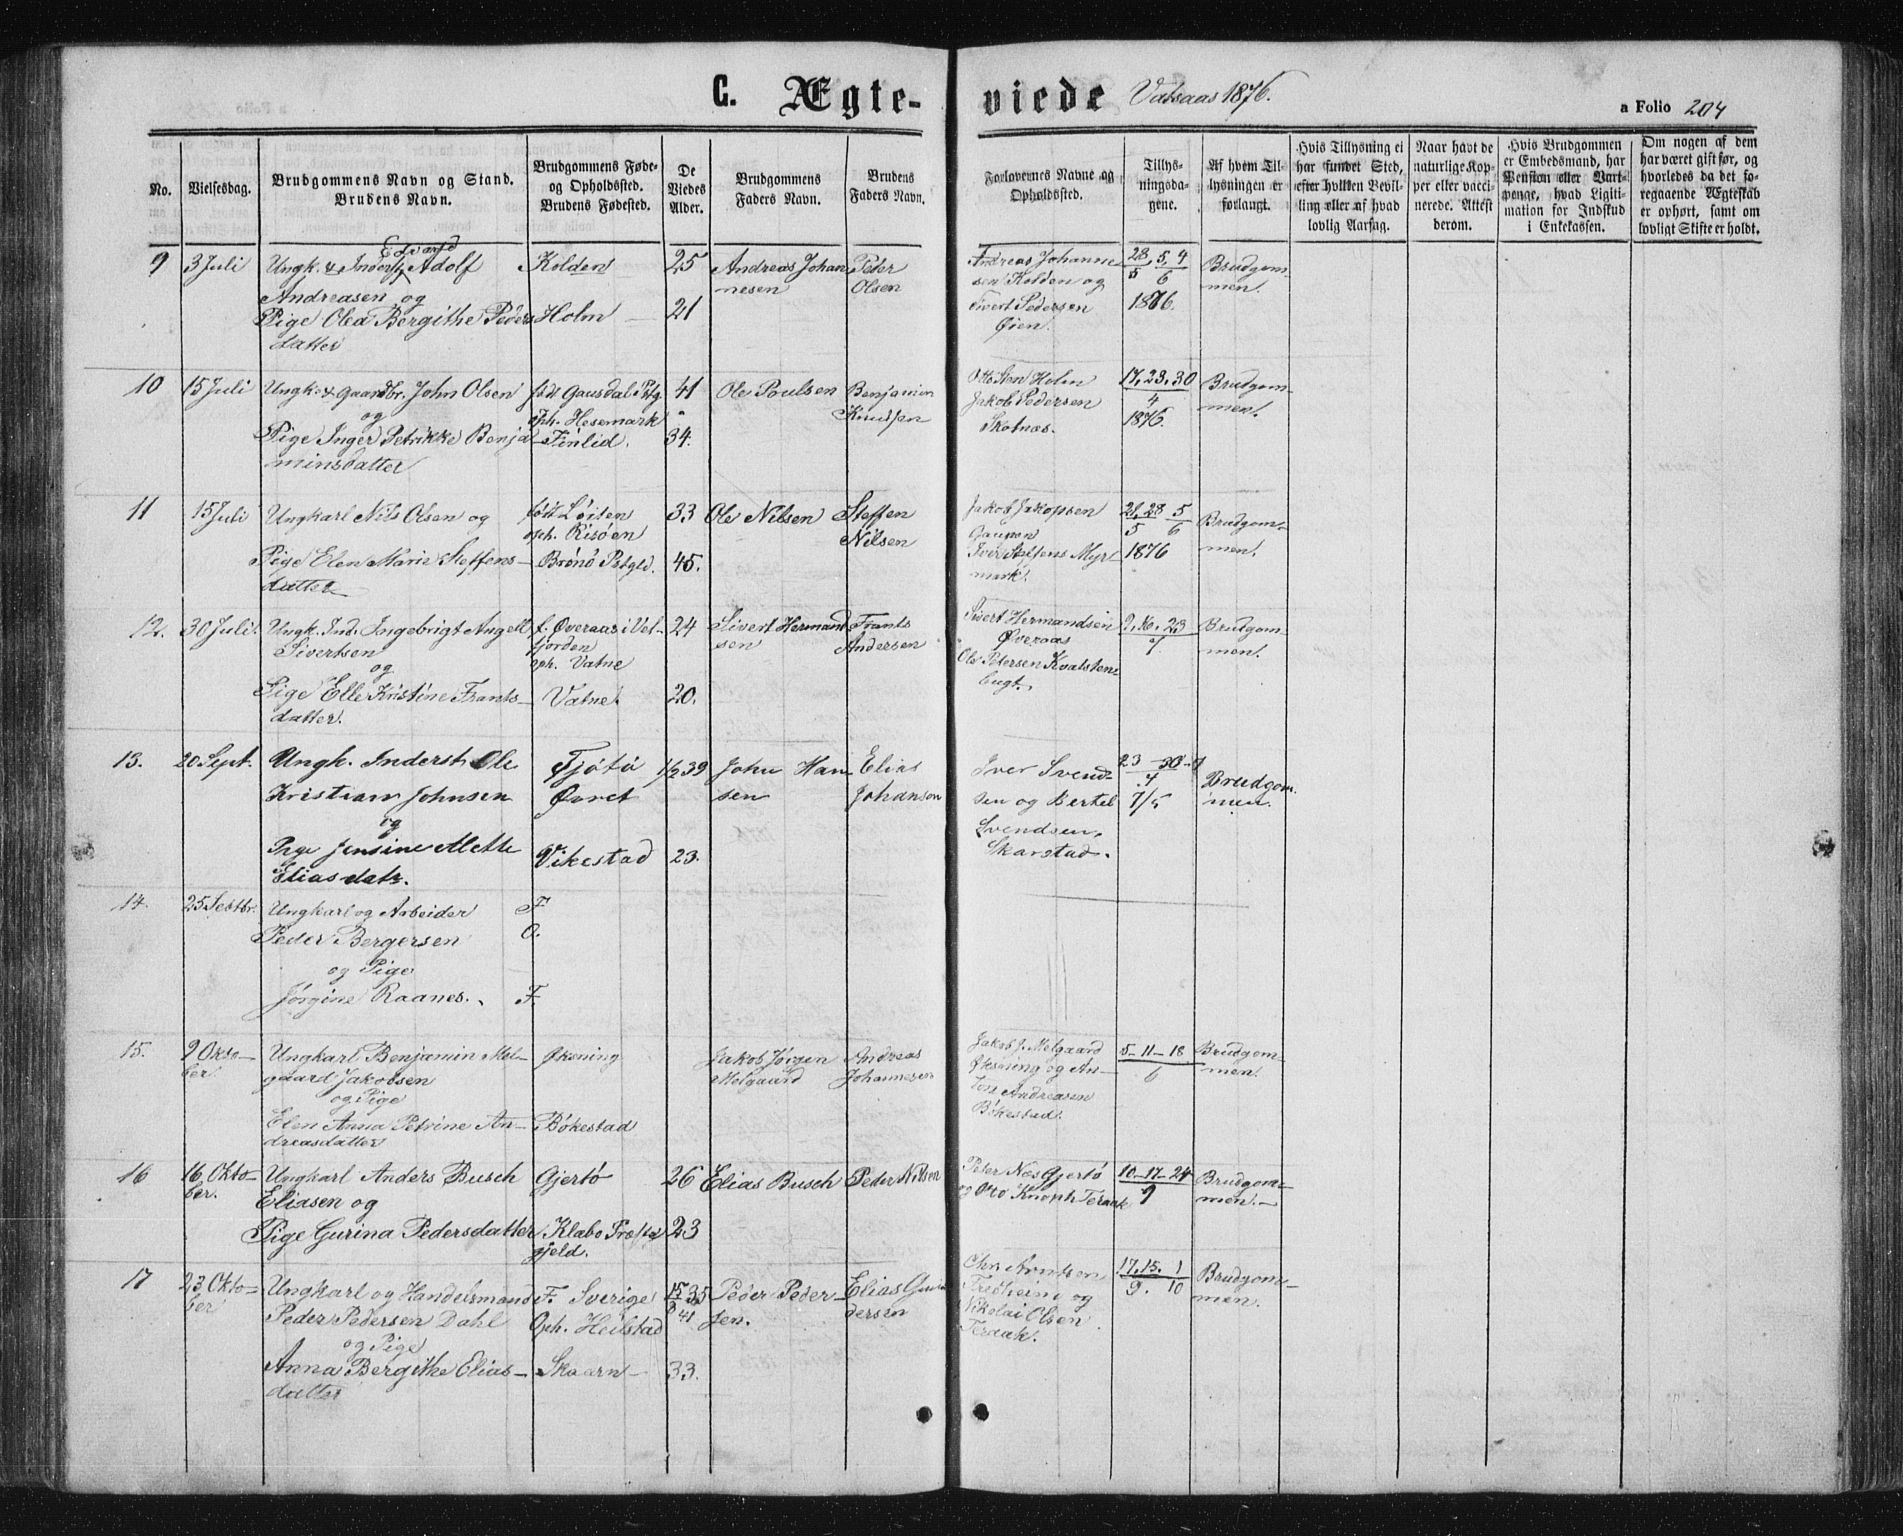 C. Ægte-
viede Vatsaas 1876.
a Folio 204
No.
Vielsesdag.
Brudgommens Navn og Stand.
Brudens Navn.
Brudgommens Føde-
og Opholdssted.
Brudens Fødested.
De
Viedes
Alder.
Brudgommens
Faders Navn.
Brudens
Faders Navn.
Forlovernes Navne og
Opholdssted.
Tillys-
ningsda-
gene.
Af hvem Til-
lysningen er
forlangt.
Hvis Tillysning ei
har fundet Sted,
efter hvilken Bevil-
ling eller af hvad
lovlig Aarsag.
Naar havt de
naturlige Kop-
per eller vacci-
nerede. Attest
derom.
Hvis Brudgommen
er Embedsmand, har
Pension eller Vart-
penge, hvad Ligiti-
mation for Indskud
i Enkekassen.
Om nogen af dem
har været gift før, og
hvorledes da det fo-
regaaende Ægteskab
er ophørt, samt om
lovligt Skifte er holdt.
9 3 Juli
Edvard
Ungk. & Inderst Adolf
Andreasen og
Pige Olea Bergithe Peders
datter
Kolden
Holm
25
21
Andreas Johan
nesen
Peter
Olsen
Andreas Johanne
sen Kolden og
Sivert Pedersen
Øien.
28, 5, 4
5 6
1876.
Brudgom-
men.
10 15 Juli
Ungk. & Gaardbr. John Olsen
og
Pige Inger Petrikke Benja
minsdatter
født Gausdal Pstg
Oph. Hesemark
Finlid.
41
34.
Ole Poulsen
Benjamin
Knudsen
Otto Sen Holm
Jakob Pedersen
Skotnæs.
17, 23, 30
4
1876.
Brudgom-
men.
11 15 Juli
Ungkarl Nils Olsen og
Pige Elen Marie Steffens-
datter
født Løiten
oph. Risøen
Brønø Pstgld.
33
45.
Ole Nilsen
Steffen
Nilsen
Jakob Jakopsen
Gaupen
Iver Steffens Myr
mark.
21, 28 5
5 6
1876
Brudgom-
men.
12. 30 Juli.
Ungk. Ind. Ingebrigt Angell
Sivertsen
og
Pige Elle Kristine Frants-
datter.
f. Øveraas i Vel-
fjorden
oph. Vatne
Vatne
24
20.
Sivert Hermand
sen
Frants
Andersen
Sivert Hermandsen
Øveraas
Ole Petersen Kvalstens
bugt.
9, 16, 23
7
Brudgom-
men.
13. 20 Sept.
Ungk. Inderst Ole
Kristian Johnsen
og
Pige Jensine Alette
Eliasdatr.
Tjøtø
Øvret
Vikestad
1/2 39
23.
John Han-
sen
Elias
Johanson
Iver Svend-
sen og Bertel
Svendsen,
Skarstad.
23 - 30 -
4
7/5
Brudgom-
men.
14. 25 Septbr.
Ungkarl og Arbeider
Peder Bergersen
og Pige
Jørgine Raanes.
F.
O.
F.
15. 9 Okto-
ber.
Ungkarl Benjamin Mel-
gaard Jakobsen
og Pige
Elen Anna Petrine An-
dreasdatter
Øksning
Bökestad
Jakob Jørgen
Melgaard
Andreas
Johannesen
Jakob J. Melgaard
Øksning og An-
ton Andreasen
Bökestad.
5-11-18
6
Brudgom-
men.
16 16 Okto-
ber.
Ungkarl Anders Busch
Eliasen og
Pige Gurina Pedersdatter
Gjertø
Klabo Præste
gjeld.
26
23
Elias Busch
Peder Nilsen
Peter Næs Gjertø
og Otto Knoph Teraak
10-17-24
9
Brudgom-
men.-
17 23 Okto-
ber
Ungkarl og Handelsmand
Peder Pedersen Dahl
og Pige
Anna Bergithe Elias-
datter
F. Sverige
Oph. Heilstad
Skaarn-
15 35
41
33.
Peder Peder-
sen.
Elias Gun-
dersen
Chr. Arntsen
Fredheim og
Nikolai Olsen
Teraak.
17, 15, 1
9. 10
Brudgom-
men.